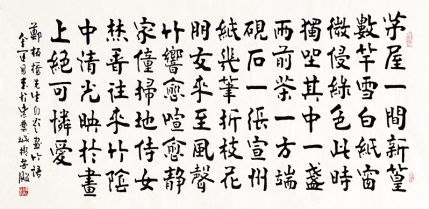 茅屋一間新篁
數竿雪白紙窗
微侵綠色此時
獨坐其中一盞
雨前茶一方端
硯石一張宣州
紙幾筆折枝花
朋友來至風聲
竹響愈喧愈靜
家僮掃地侍女
焚香往來竹陰
中清光映於畫
上絕可憐愛
鄭板橋先生自題畫竹語